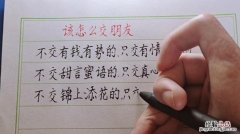 该怎么交朋友
不交有钱有势的,只交有情
不交甜言蜜语的,只交真心
不交锦上添花的,只